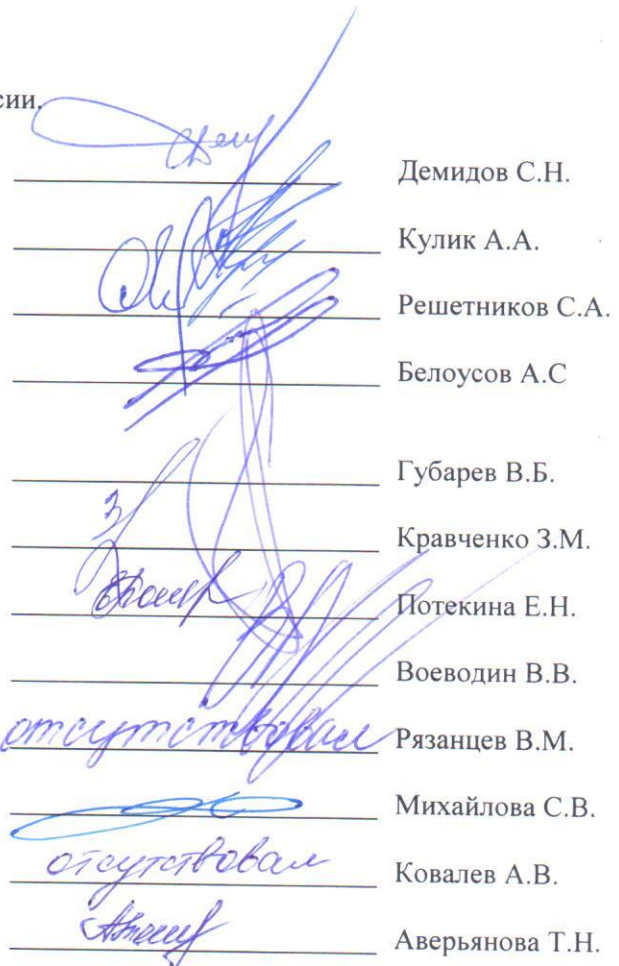 сии.
Демидов С.Н.
Кулик А.А.
Решетников С.А.
Белоусов А.С
Губарев В.Б.
Кравченко З.М.
Потекина Е.Н.
Воеводин В.В.
отсутствовал Рязанцев В.М.
Михайлова С.В.
отсутствовал Ковалев А.В.
Аверьянова Т.Н.